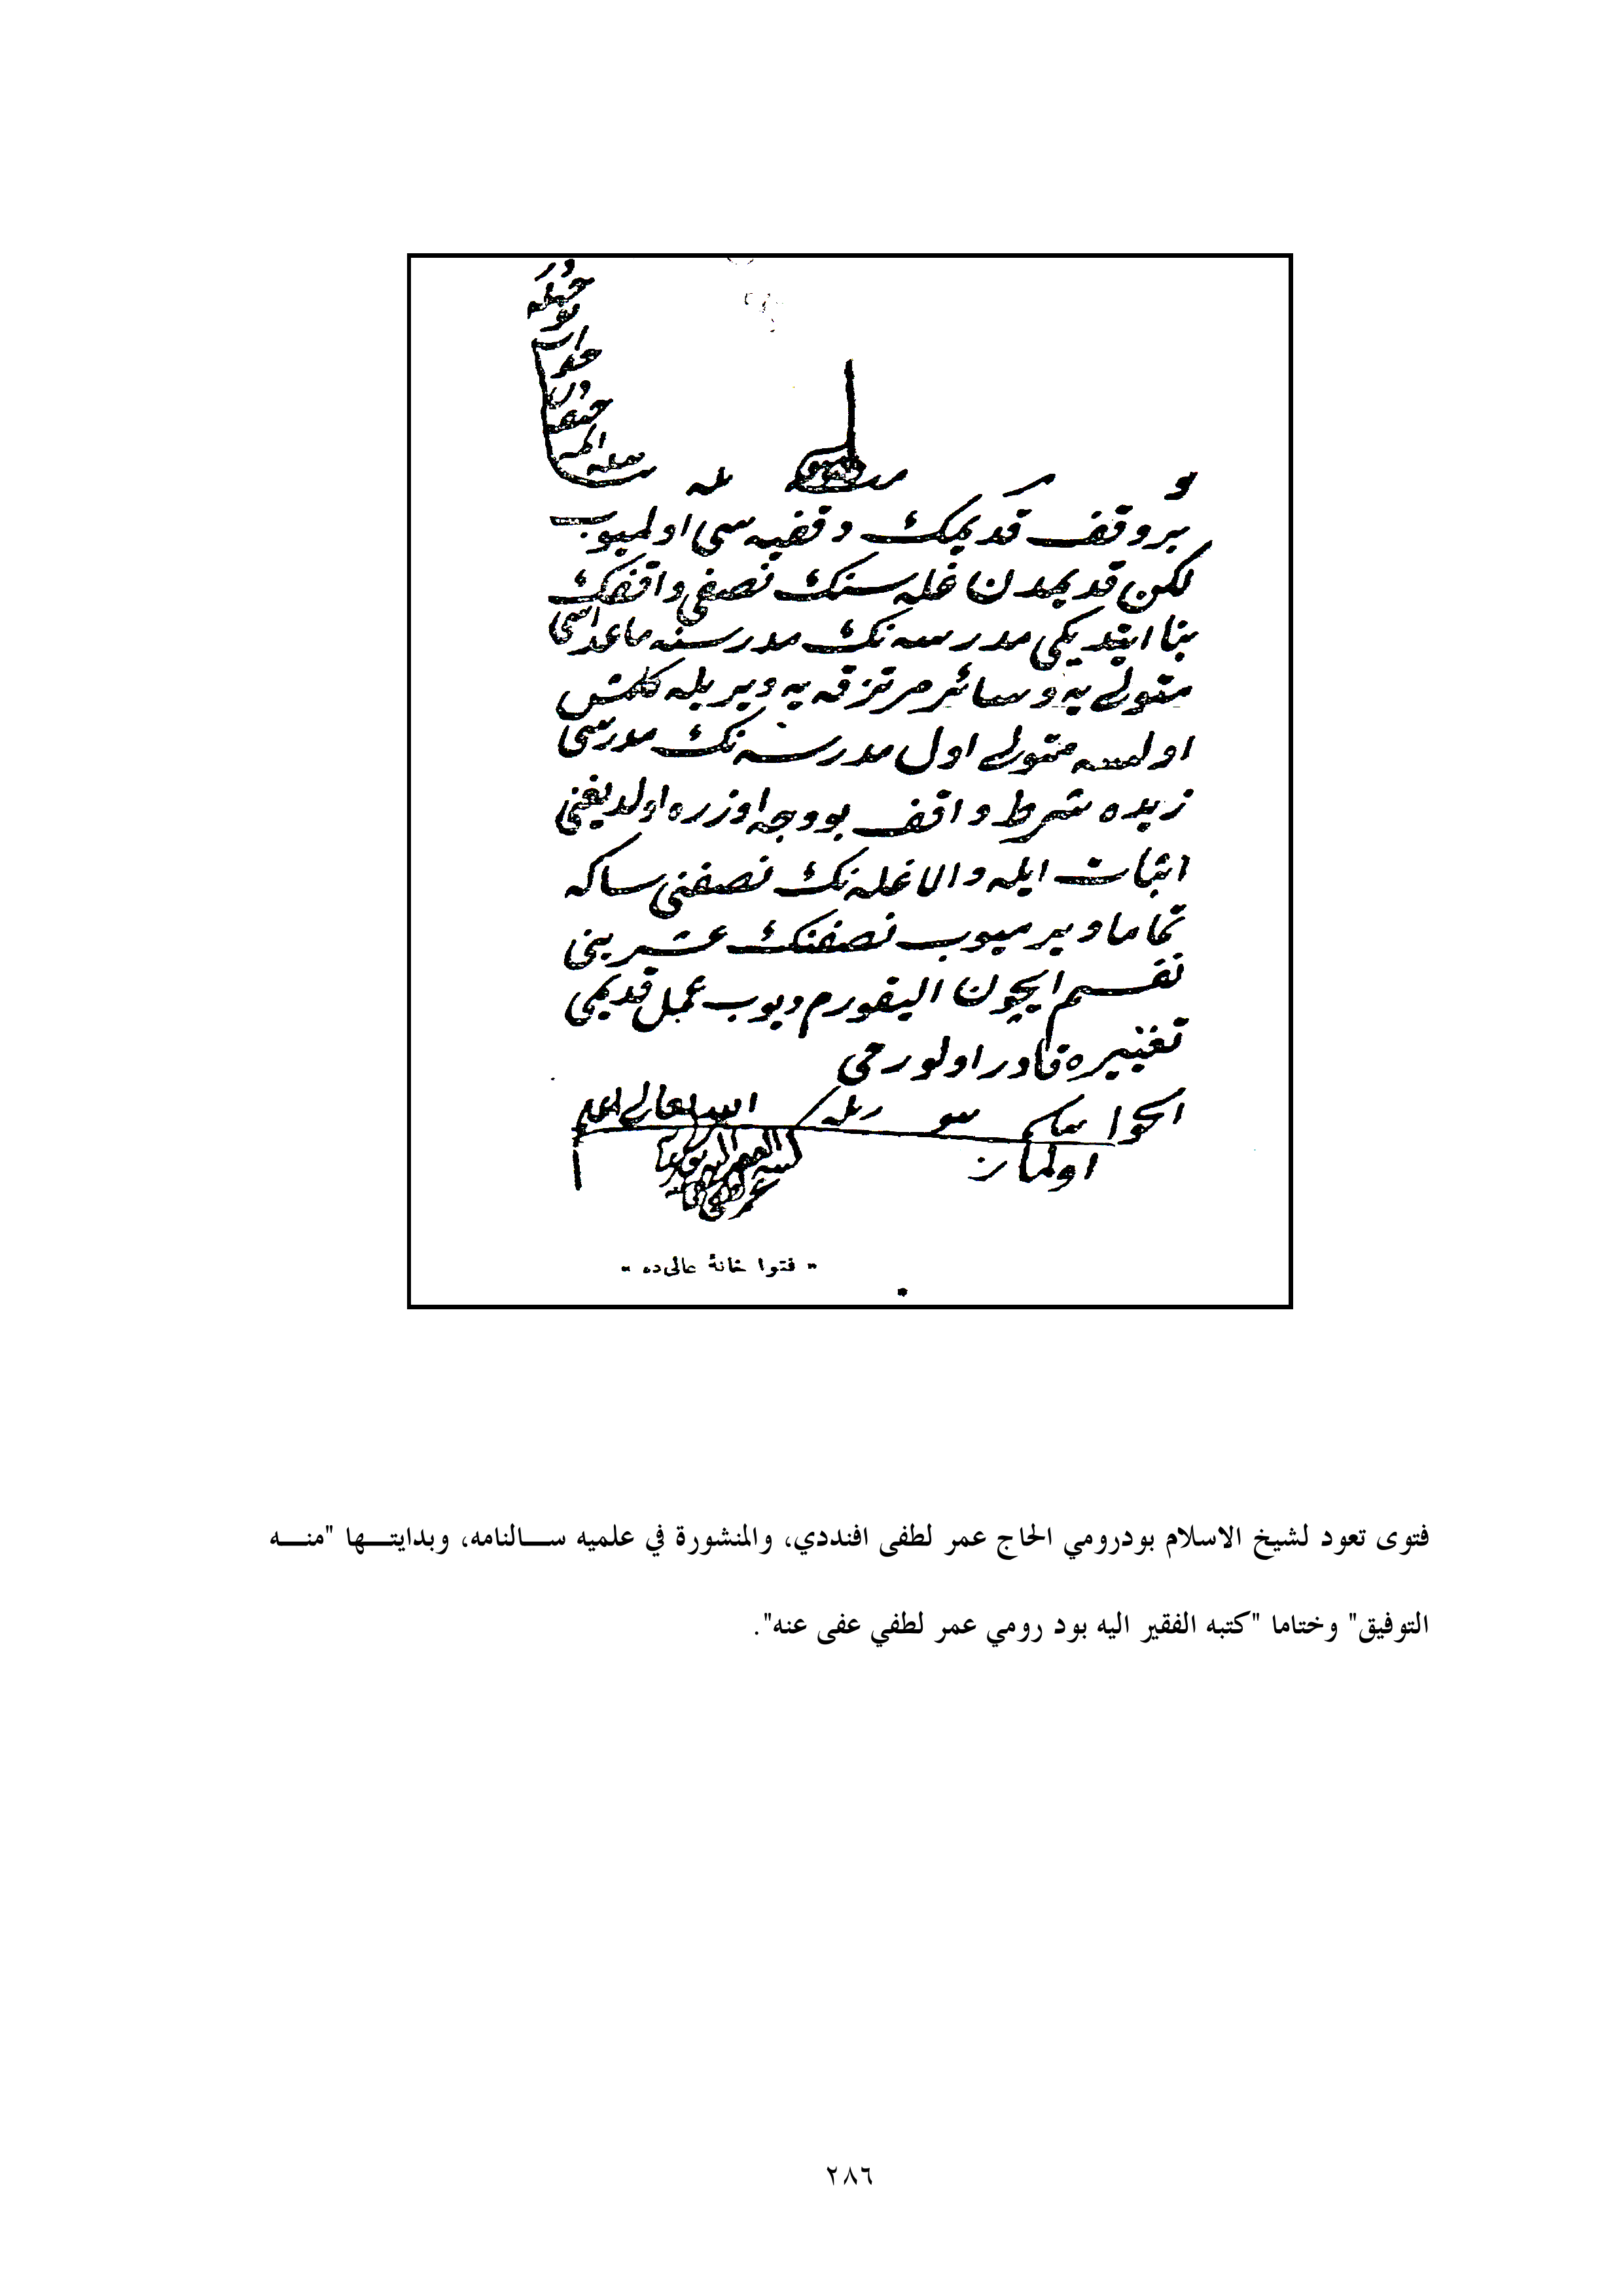 بر وقف قديمك وقفيه سى اولميوب
لكن قديمدن غله سنك نصفى واقفك
بنا ايتديكى مدرسه نك مدرسنه ماعداسى
متولى يه و سائر مرتزقه يه ويريله كلمش
اولسه متولى اول مدرسه نك مدرسى
زيده شرط واقف بو وجه اوزره اولديغنى
اثبات ايله والا غله نك نصفنى ساكه
تماما ويرميوب نصفنك عشرينى
نفسم ايچون اليقورم ديوب عمل قديمى
تغييره قادر اولورمى
الجواب الله تعالى اعلم
اولماز
« فتوا خانۀ عالى ده »
فتوى تعود لشيخ الاسلام بودرومي الحاج عمر لطفى افنددي، والمنشورة في علميه ســالنامه، وبدايتــها "منــه
التوفيق" وختاما "كتبه الفقير اليه بود رومي عمر لطفي عفى عنه".
٢٨٦